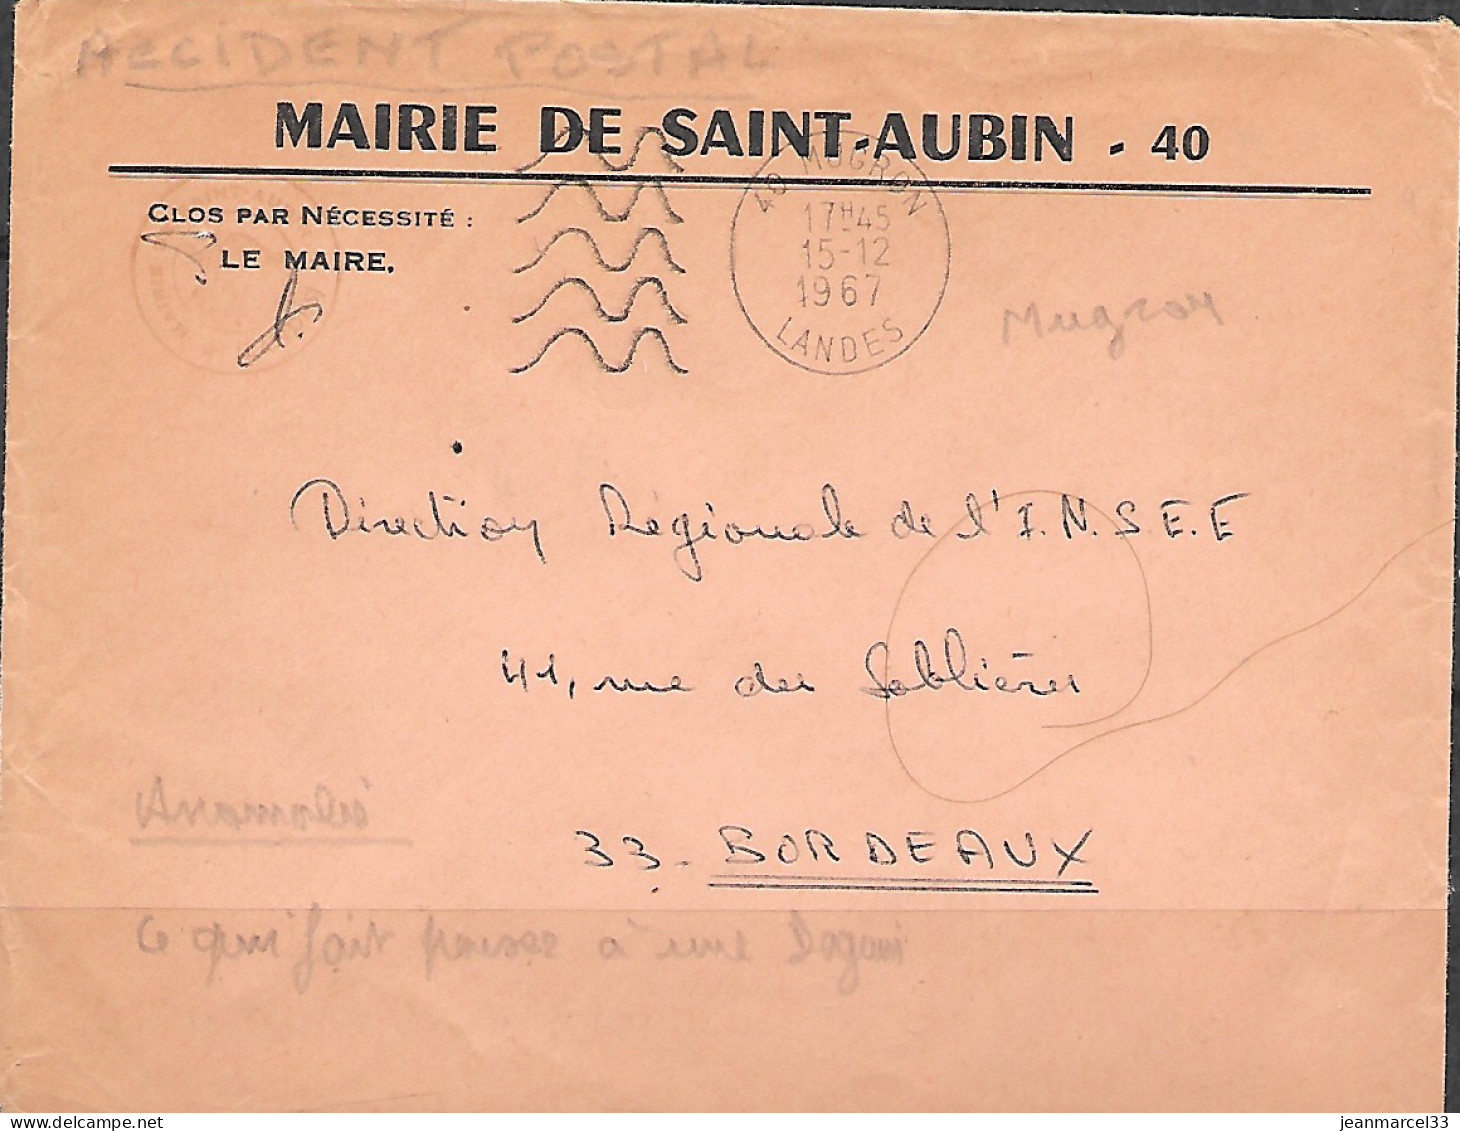 ACCIDENT POSTAL
MAIRIE DE SAINT-AUBIN - 40
CLOS PAR NÉCESSITÉ :
LE MAIRE,
40 MUGRON
17H45
15-12
1967
LANDES
Mugron
Direction Régionale de l'I.N.S.E.E
41, rue des Sablières
33 - BORDEAUX
Anomalie
Ce qui fait penser à une
jeanmarcel33